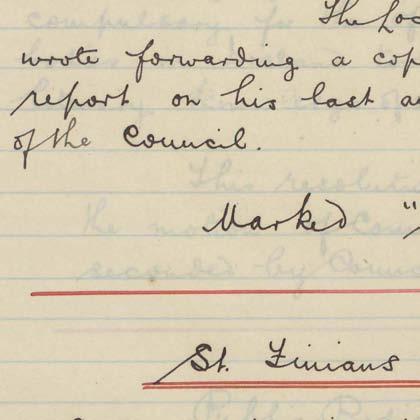 The Lo
wrote forwarding a cop
report on his last a
of the Council.
Marked "
St. Finians